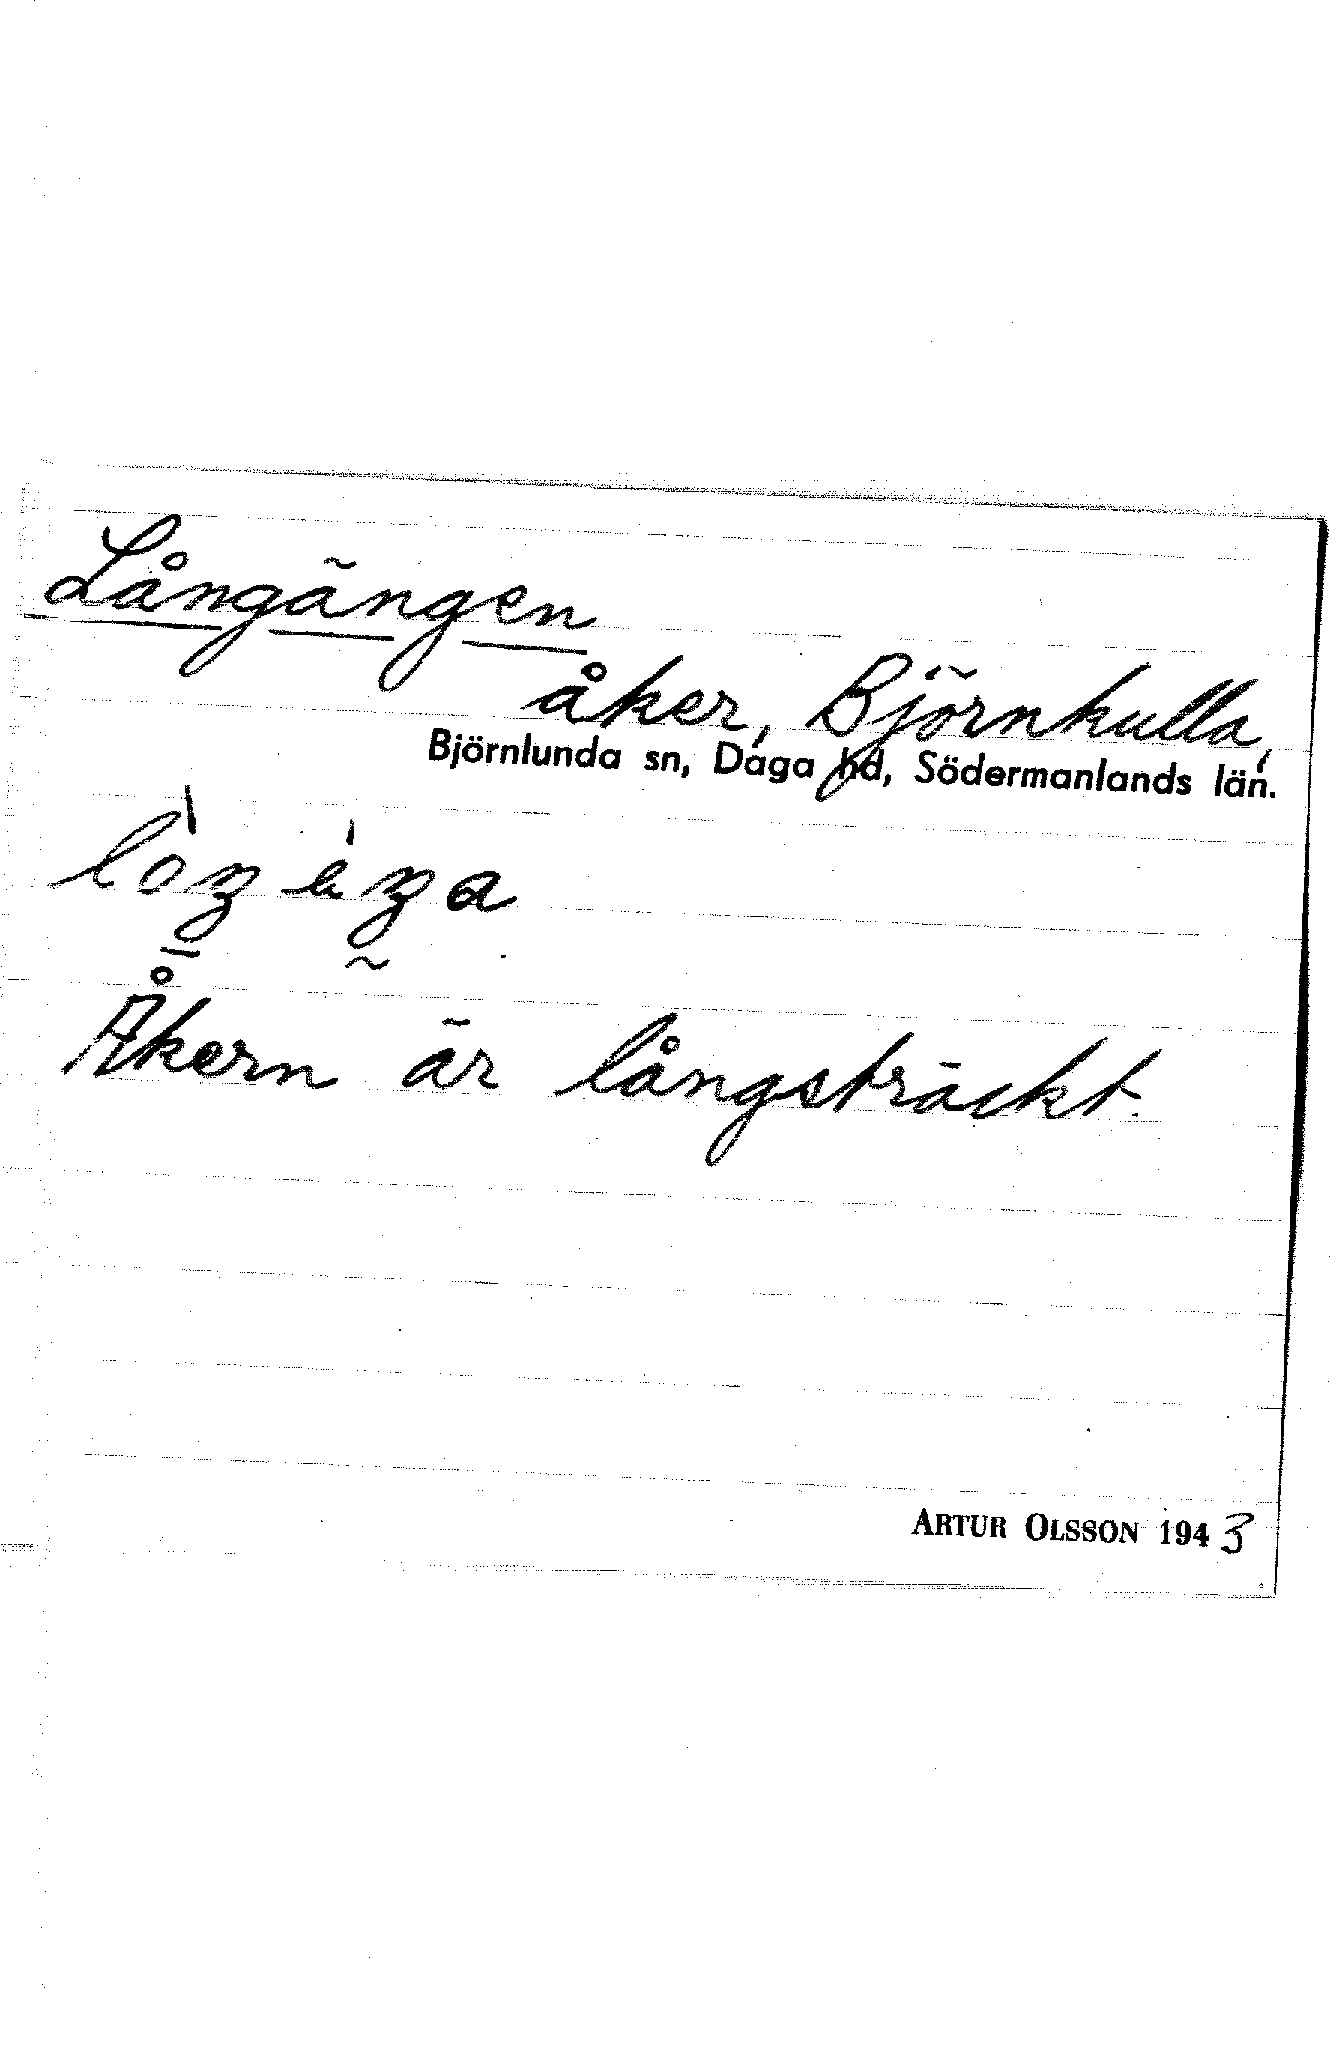 Långängen
åker, Björnkulla,
Björnlunda sn, Daga hd, Södermanlands län.
Åkern är långsträckt.
ARTUR OLSSON 1943